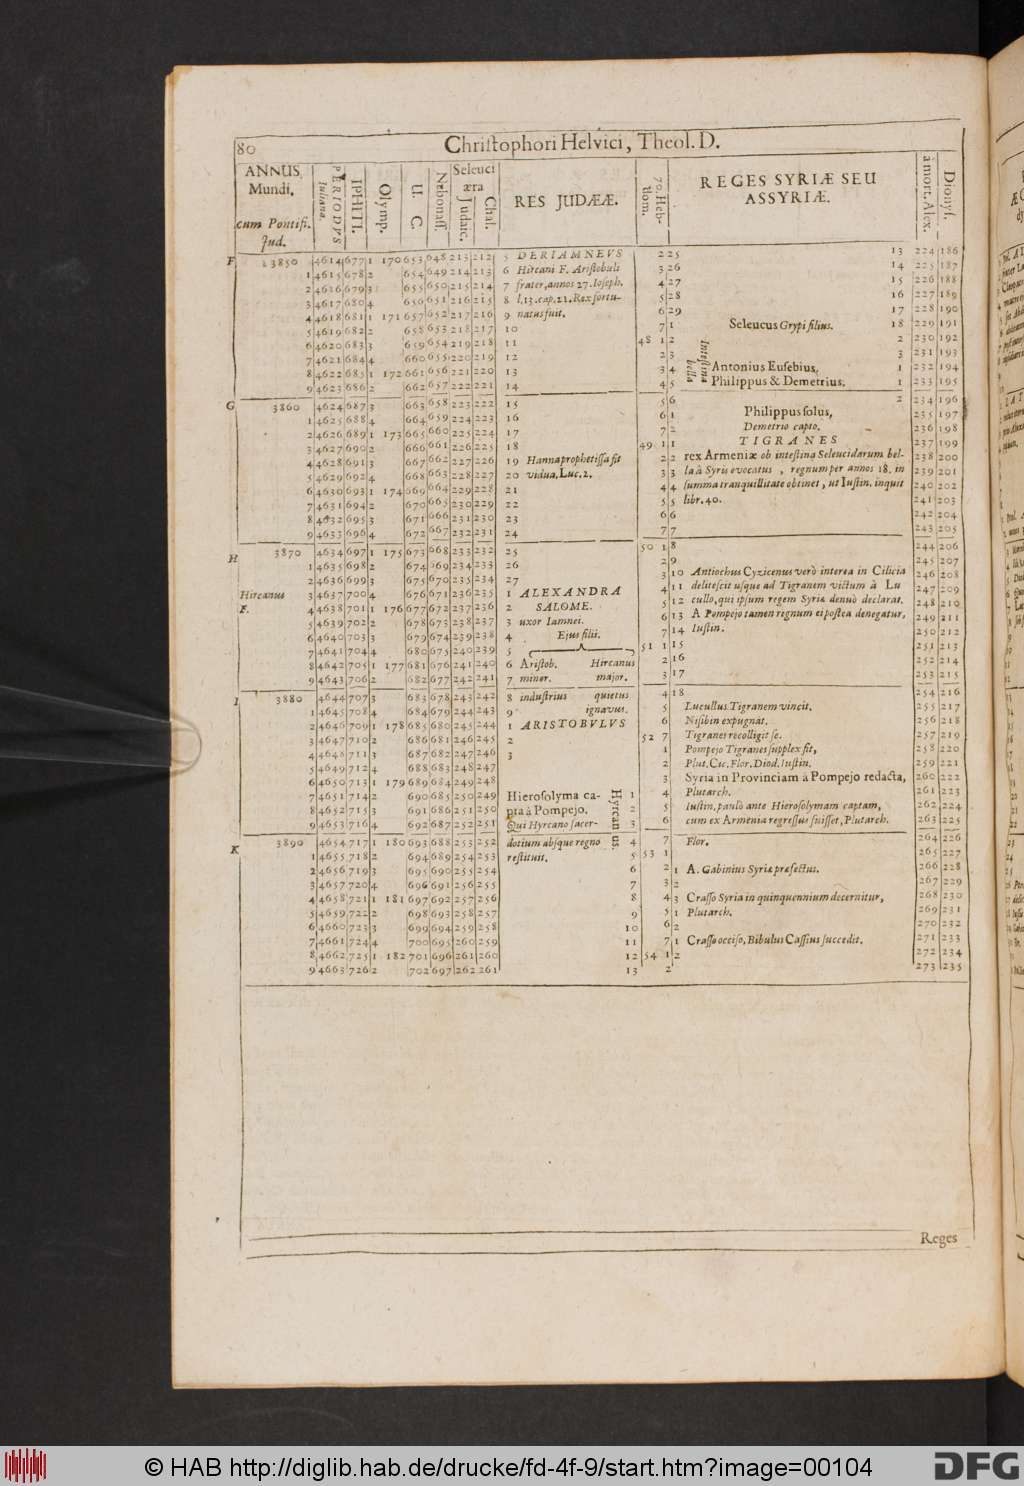 80 Christophori Helvici, Theol. D.
ANNUS Mundi. cum Pontifi. Jud. | PERIODUS Juliana. | IPHITI. | Olymp. | U. C. | Nabonass. | Seleuci æra Judaic. | Chal. | RES JUDÆÆ. | 70. Heb-dom. | REGES SYRIÆ SEU ASSYRIÆ. | à mort. Alex. | Dionys.
F 3850 4614 677 1 170 653 648 213 212 5 DERIAMNEVS 2 25 13 224 186
1 4615 678 2 654 649 214 213 6 Hircani F. Aristobuli 3 26 14 225 187
2 4616 679 3 655 650 215 214 7 frater, annos 27. Ioseph. 4 27 15 226 188
3 4617 680 4 656 651 216 215 8 l. 13. cap. 21. Rex fortu- 5 28 16 227 189
4 4618 681 1 171 657 652 217 216 9 natus fuit. 6 29 17 228 190
5 4619 682 2 658 653 218 217 10 7 1 Seleucus Grypi filius. 18 229 191
6 4620 683 3 659 654 219 218 11 48 1 2 Intestina bella 2 230 192
7 4621 684 4 660 655 220 219 12 2 3 3 231 193
8 4622 685 1 172 661 656 221 220 13 3 4 Antonius Eusebius, 1 232 194
9 4623 686 2 662 657 222 221 14 4 5 Philippus & Demetrius. 1 233 195
G 3860 4624 687 3 663 658 223 222 15 5 6 2 234 196
1 4625 688 4 664 659 224 223 16 6 1 Philippus solus, 235 197
2 4626 689 1 173 665 660 225 224 17 7 2 Demetrio capto. 236 198
3 4627 690 2 666 661 226 225 18 49 1 1 TIGRANES 237 199
4 4628 691 3 667 662 227 226 19 Hanna prophetissa fit 2 2 rex Armeniæ ob intestina Seleucidarum bel- 238 200
5 4629 692 4 668 663 228 227 20 vidua. Luc. 2. 3 3 la à Syris evocatus , regnum per annos 18. in 239 201
6 4630 693 1 174 669 664 229 228 21 4 4 summa tranquillitate obtinet, ut Iustin. inquit 240 202
7 4631 694 2 670 665 230 229 22 5 5 libr. 40. 241 203
8 4632 695 3 671 666 231 230 23 6 6 242 204
9 4633 696 4 672 667 232 231 24 7 7 243 205
H 3870 4634 697 1 175 673 668 233 232 25 50 1 8 244 206
1 4635 698 2 674 669 234 233 26 2 9 245 207
2 4636 699 3 675 670 235 234 27 3 10 Antiochus Cyzicenus verò interea in Cilicia 246 208
Hircanus 3 4637 700 4 676 671 236 235 1 ALEXANDRA 4 11 delitescit usque ad Tigranem victum à Lu 247 209
F. 4 4638 701 1 176 677 672 237 236 2 SALOME. 5 12 cullo, qui ipsum regem Syriæ denuò declarat. 248 210
5 4639 702 2 678 673 238 237 3 uxor Iamnei. 6 13 A Pompejo tamen regnum ei postea denegatur, 249 211
6 4640 703 3 679 674 239 238 4 Ejus filii. 7 14 Iustin. 250 212
7 4641 704 4 680 675 240 239 5 51 1 15 251 213
8 4642 705 1 177 681 676 241 240 6 Aristob. Hircanus 2 16 252 214
9 4643 706 2 682 677 242 241 7 minor. major. 3 17 253 215
I 3880 4644 707 3 683 678 243 242 8 industrius quietus 4 18 254 216
1 4645 708 4 684 679 244 243 9 ignavus. 5 Lucullus Tigranem vincit. 255 217
2 4646 709 1 178 685 680 245 244 1 ARISTOBVLVS 6 Nisibin expugnat. 256 218
3 4647 710 2 686 681 246 245 2 52 7 Tigranes recolligit se. 257 219
4 4648 711 3 687 682 247 246 3 1 Pompejo Tigranes supplex fit, 258 220
5 4649 712 4 688 683 248 247 2 Plut. Cic. Flor. Diod. Iustin. 259 221
6 4650 713 1 179 689 684 249 248 3 Syria in Provinciam à Pompejo redacta, 260 222
7 4651 714 2 690 685 250 249 Hierosolyma ca- Hyrcanus. 1 4 Plutarch. 261 223
8 4652 715 3 691 686 251 250 pta à Pompejo. 2 5 Iustin. paulò ante Hierosolymam captam, 262 224
9 4653 716 4 692 687 252 251 Qui Hyrcano sacer- 3 6 cum ex Armenia regressus fuisset, Plutarch. 263 225
K 3890 4654 717 1 180 693 688 253 252 dotium absque regno 4 7 Flor. 264 226
1 4655 718 2 694 689 254 253 restituit. 5 53 1 265 227
2 4656 719 3 695 690 255 254 6 2 1 A. Gabinius Syriæ præfectus. 266 228
3 4657 720 4 696 691 256 255 7 3 2 267 229
4 4658 721 1 181 697 692 257 256 8 4 3 Crasso Syria in quinquennium decernitur, 268 230
5 4659 722 2 698 693 258 257 9 5 1 Plutarch. 269 231
6 4660 723 3 699 694 259 258 10 6 2 270 232
7 4661 724 4 700 695 260 259 11 7 1 Crasso occiso, Bibulus Cassius succedit. 271 233
8 4662 725 1 182 701 696 261 260 12 54 1 2 272 234
9 4663 726 2 702 697 262 261 13 2 273 235
Reges
© HAB http://diglib.hab.de/drucke/fd-4f-9/start.htm?image=00104
DFG